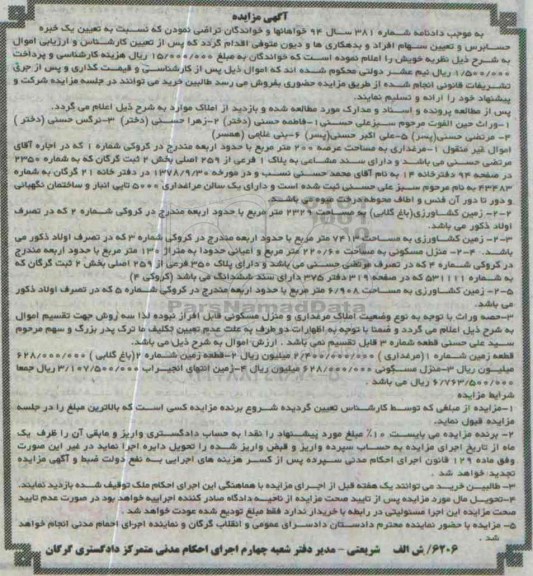 آگهی مزایده
به موجب دادنامه شماره ۳۸۱ سال ۹۴ خواهانها و خواندگان تراضی نمودن که نسبت به تعیین یک خبره
حسابرس و تعیین سهام افراد و بدهکاری ها و دیون متوفی اقدام گردد که پس از تعیین کارشناس و ارزیابی اموال
به شرح ذیل نظریه خویش را اعلام نموده است که خواندگان به مبلغ ۱۵/۰۰۰/۰۰۰ ریال هزینه کارشناسی و پرداخت
۱/۵۰۰/۰۰۰ ریال نیم عشر دولتی محکوم شده اند که اموال ذیل پس از کارشناسی و قیمت گذاری و پس از جری
تشریفات قانونی انجام شده از طریق مزایده حضوری بفروش می رسد طالبین خرید می توانند در جلسه مزایده شرکت و
پیشنهاد خود را ارائه و تسلیم نمایند.
پس از مطالعه پرونده و اسناد و مدارک مورد مطالعه شده و بازدید از املاک موارد به شرح ذیل اعلام می گردد.
۱-وراث حین الفوت مرحوم سبزعلی حسنی ۱-فاطمه حسنی (دختر) ۲-زهرا حسنی (دختر) ۳-نرگس حسنی (دختر)
۴- مرتضی حسنی(پسر) ۵-علی اکبر حسنی(پسر) ۶-بنی غلامی (همسر)
اموال غیر منقول ۱-مرغداری به مساحت عرصه ۲۰۰ متر مربع با حدود اربعه مندرج در کروکی شماره ۱ که در اجاره آقای
مرتضی حسنی می باشد و دارای سند مشاعی به پلاک ۱ فرعی از ۲۵۹ اصلی بخش ۲ ثبت گرگان که به شماره ۲۳۵۰
در صفحه ۹۴ دفترخانه ۱۴ به نام آقای محمد حسنی نسب و در مورخه ۱۳۷۸/۹/۳۰ در دفتر خانه ۲۱ گرگان به شماره
۴۳۴۸۳ به نام مرحوم سبز علی حسنی ثبت شده است و دارای یک سالن مرغداری ۵۰۰۰ تایی انبار و ساختمان نگهبانی
و دور تا دور آن فنس و اطاف محوطه درخت میوه می باشد.
۲-۲- زمین کشاورزی(باغ گلابی) به مساحت ۲۳۲۹ متر مربع با حدود اربعه مندرج در کروکی شماره ۲ که در تصرف
اولاد ذکور می باشد.
۲-۳- زمین کشاورزی به مساحت ۷۴۱۴ متر مربع با حدود اربعه مندرج در کروکی شماره ۳ که در تصرف اولاد ذکور می
باشد. ۲-۴- منزل مسکونی به مساحت ۲۲۰/۶۰ متر مربع و اعیانی حدودا به متراژ ۱۳۰ متر مربع با حدود اربعه مندرج
در کروکی شماره ۴ که در تصرف مرتضی حسنی می باشد و دارای پلاک ۳۵۰ فرعی از ۲۵۹ اصلی بخش ۲ ثبت گرگان که
به شماره ۵۳۱۱۱ که در صفحه ۳۱۹ دفتر ۳۷۵ دارای سند ششدانگ می باشد (کروکی ۴)
۲-۵- زمین کشاورزی به مساحت ۶/۹۰۸ متر مربع با حدود اربعه مندرج در کروکی شماره ۵ که در تصرف اولاد ذکور
می باشد.
۳-حصه وراث با توجه به نوع وضعیت املاک مرغداری و منزل مسکونی قابل افراز نبوده لذا سه زوش جهت تقسیم اموال
به شرح ذیل اعلام می گردد و ضمنا با توجه به اظهارات دو طرف به علت عدم تعیین تکلیف ما ترک پدر بزرگ و سهم مرحوم
سید علی حسنی قطعه شماره ۳ قابل تقسیم نمی باشد . ارزش اموال به شرح ذیل می باشد.
قطعه زمین شماره ۱(مرغداری ) ۲/۴۰۰/۰۰۰/۰۰۰ میلیون ریال ۲-قطعه زمین شماره ۲(باغ گلابی ) ۶۲۸/۰۰۰/۰۰۰
میلیون ریال ۳-منزل مسکونی ۶۲۸/۰۰۰/۰۰۰ میلیون ریال ۴-زمین انتهای انجیراب ۳/۱۰۷/۵۰۰/۰۰۰ ریال جمعا
۶/۷۶۳/۵۰۰/۰۰۰ ریال می باشد .
شرایط مزایده
۱-مزایده از مبلغی که توسط کارشناس تعیین گردیده شروع برنده مزایده کسی است که بالاترین مبلغ را در جلسه
مزایده قبول نماید.
۲- برنده مزایده می بایست ۱۰٪ مبلغ مورد پیشنهاد را نقدا به حساب دادگستری واریز و مابقی آن را ظرف یک
ماه از تاریخ اجرای مزایده به حساب سپرده واریز و قبض واریز شده را تحویل دایره اجرا نماید در غیر این صورت
وفق ماده ۱۲۹ قانون اجرای احکام مدنی سپرده پس از کسر هزینه های اجرایی به نفع دولت ضبط و آگهی مزایده
تجدید خواهد شد .
۳-طالبین خرید می توانند یک هفته قبل از اجرای مزایده با هماهنگی این اجرای احکام ملک توقیف شده بازدید نمایند.
۴-تحویل مال مورد مزایده پس از تایید صحت مزایده از ناحیه دادگاه صادر کننده اجراییه خواهد بود در صورت عدم تایید
صحت مزایده این اجرا مسئولیتی در رابطه با خریدار ندارد فقط مبلغ تودیع شده عودت خواهد شد
۵- مزایده با حضور نماینده محترم دادستان دادسرای عمومی و انقلاب گرگان و نماینده اجرای احمام مدنی انجام خواهد
شد .
۶۲۰۶/ ش الف شریعتی – مدیر دفتر شعبه چهارم اجرای احکام مدنی متمرکز دادگستری گرگان
ParsNamadData